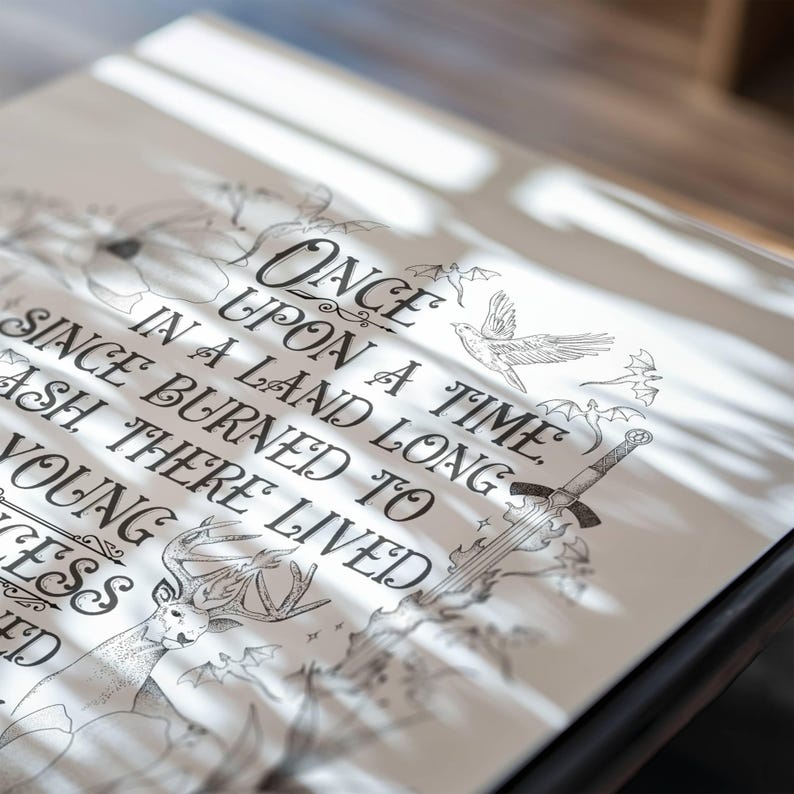 ONCE
UPON A TIME,
IN A LAND LONG
SINCE BURNED TO
ASH, THERE LIVED
YOUNG
CESS